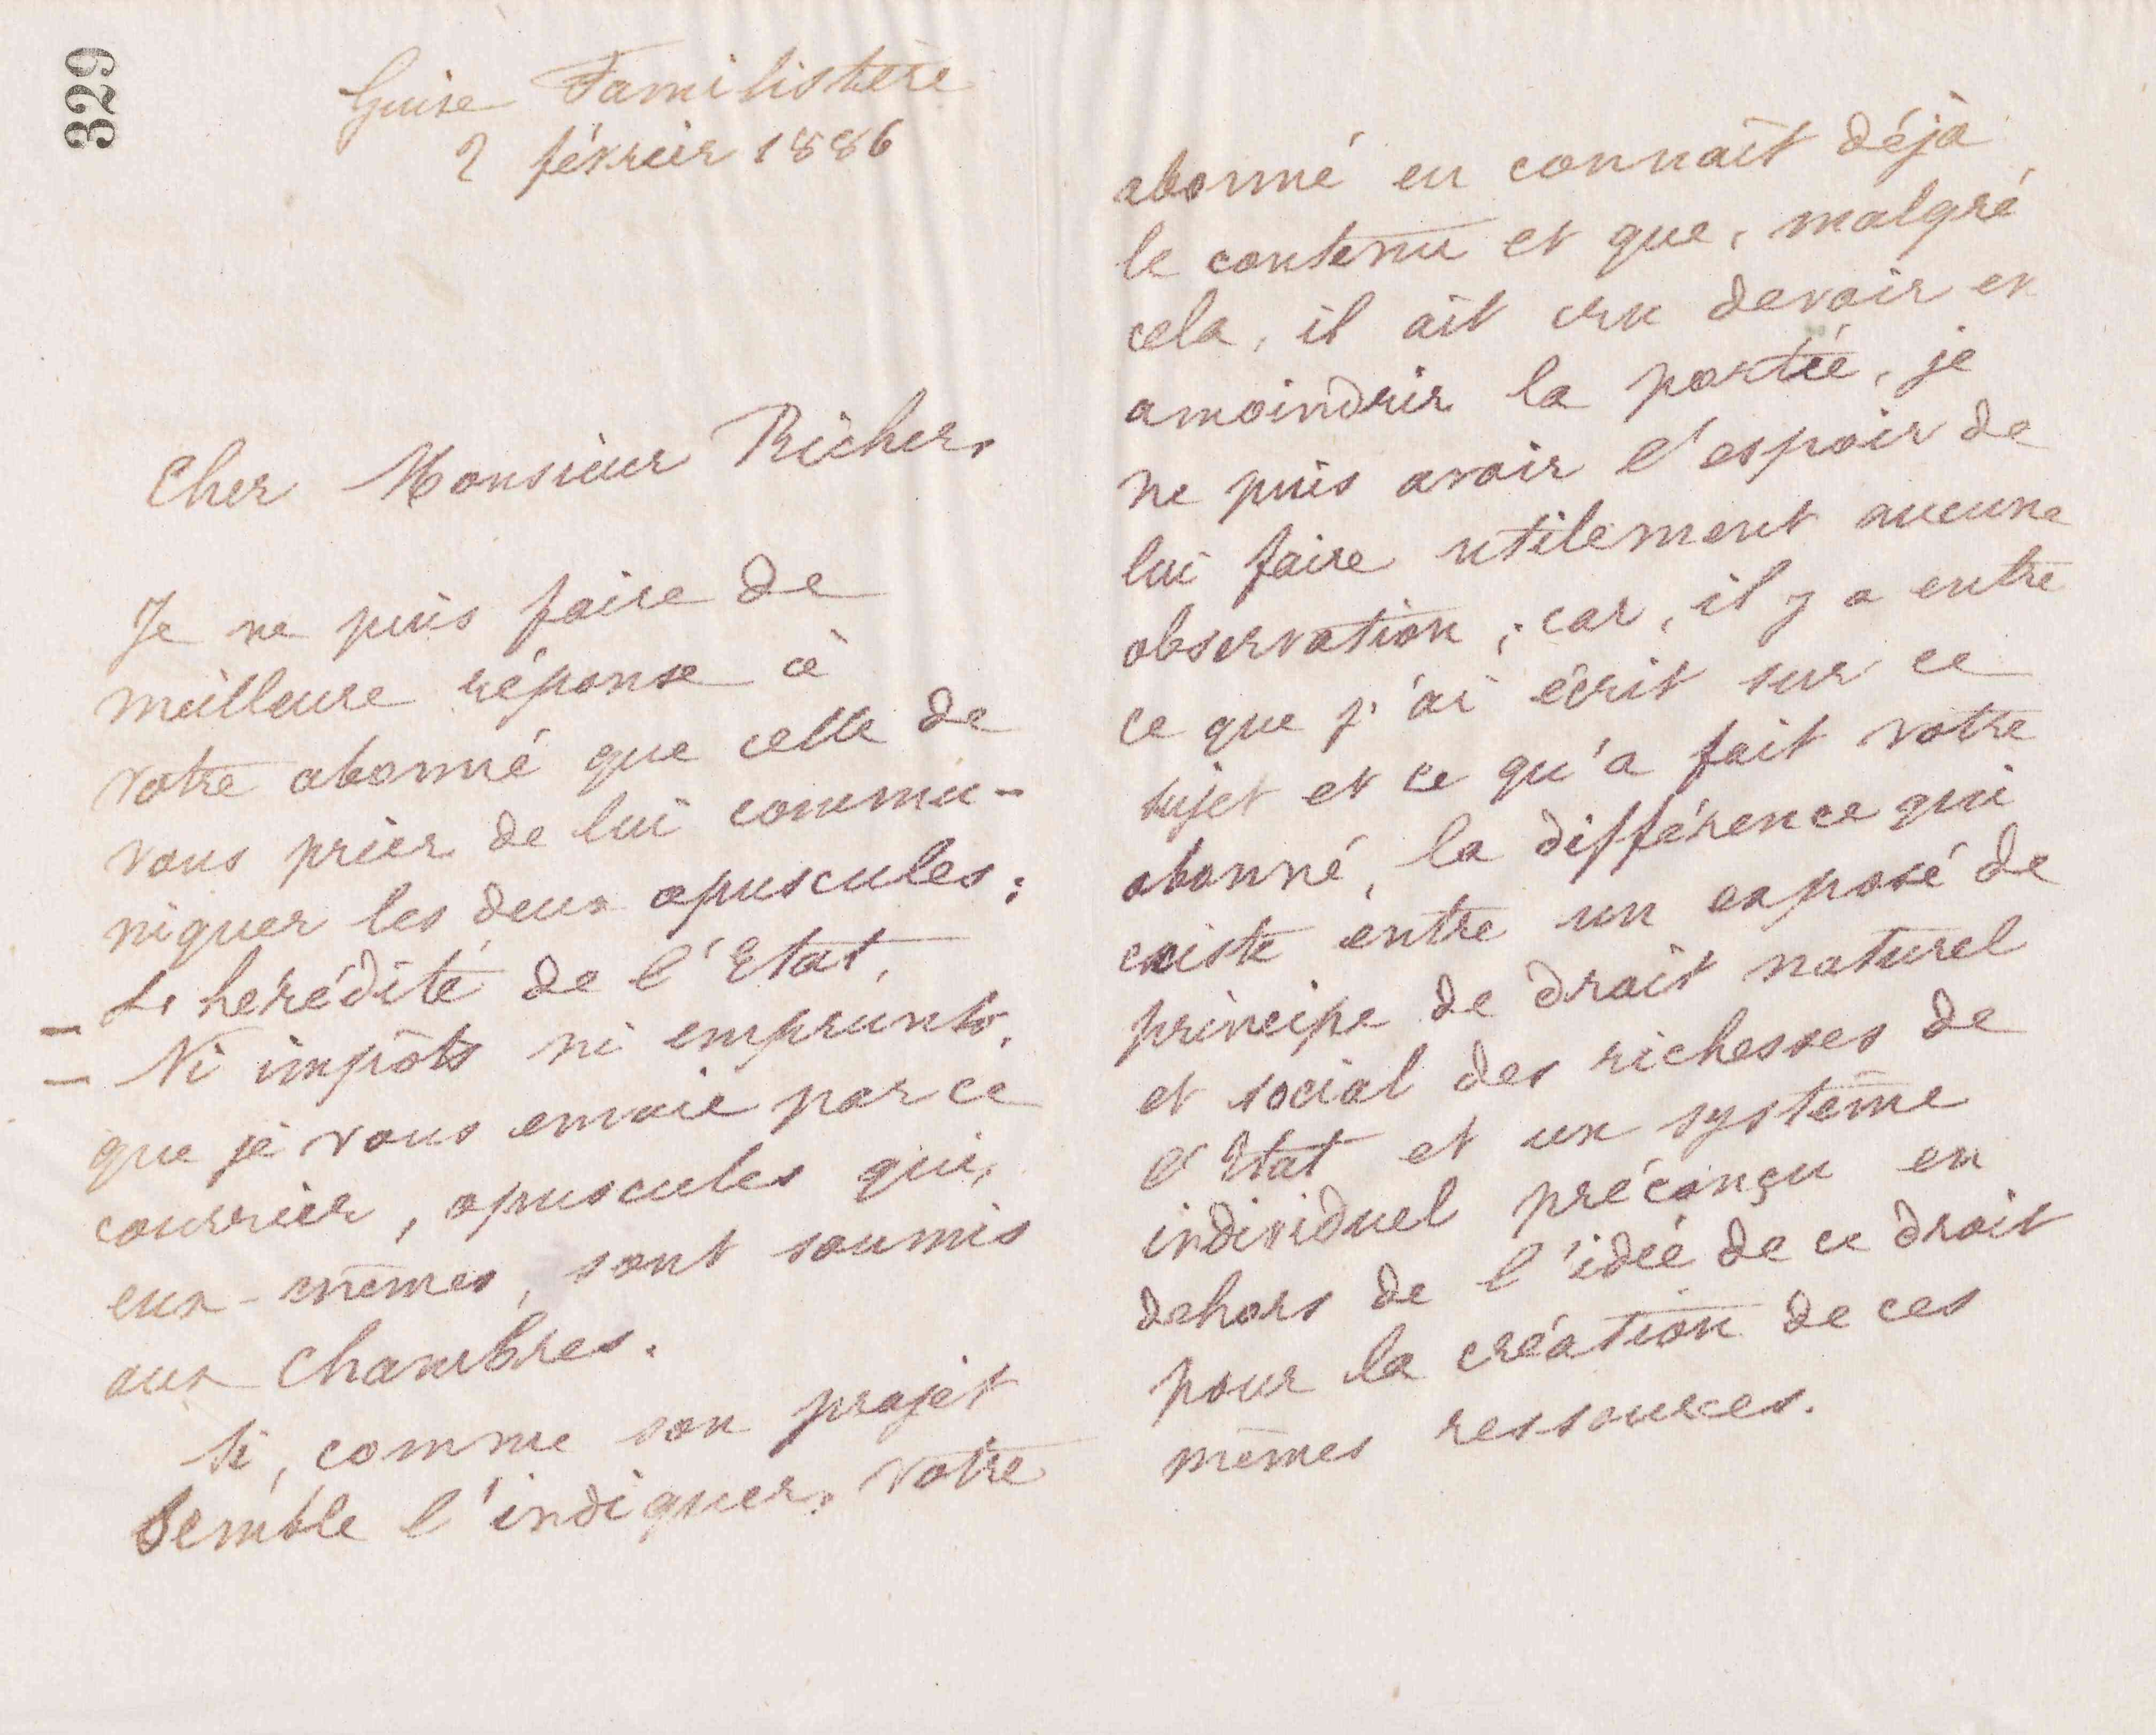 329
Guise Familistère
2 février 1886
Cher Monsieur Richer,
Je ne puis faire de
meilleure réponse à
votre abonné que celle de
vous prier de lui commu-
niquer les deux opuscules :
- L'hérédité de l'Etat,
- Ni impôts ni emprunts,
que je vous envoie par ce
courrier, opuscules qui,
eux-mêmes, sont soumis
aux Chambres.
Si, comme son projet
semble l'indiquer, votre
abonné en connaît déjà
le contenu et que, malgré
cela, il ait cru devoir en
amoindrir la portée, je
ne puis avoir l'espoir de
lui faire utilement aucune
observation ; car, il y a entre
ce que j'ai écrit sur ce
sujet et ce qu'a fait votre
abonné, la différence qui
existe entre un exposé de
principe de droit naturel
et social des richesses de
l'Etat et un système
individuel préconçu en
dehors de l'idée de ce droit
pour la création de ces
mêmes ressources.